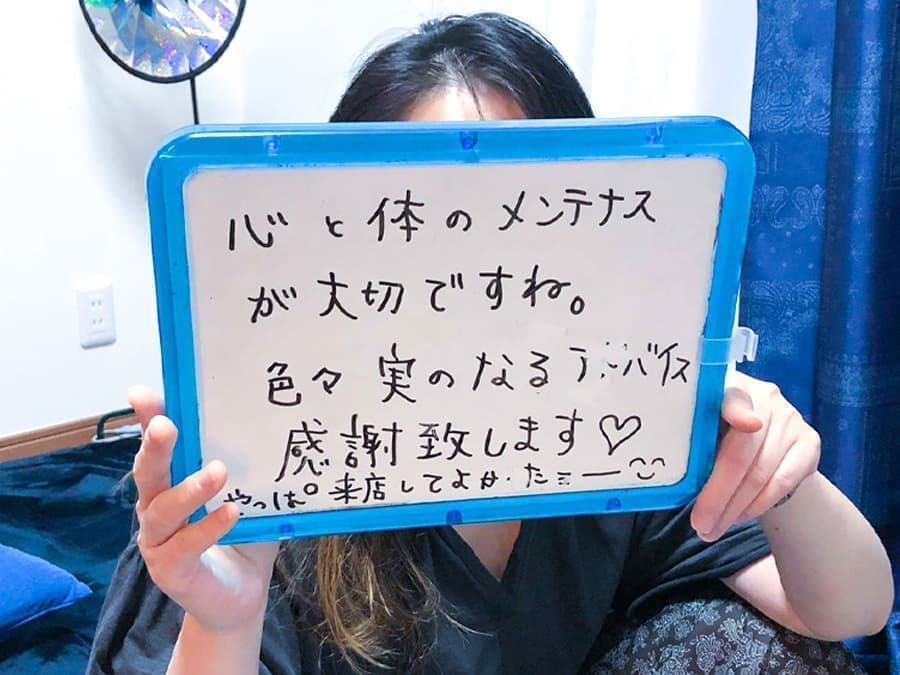 心と体のメンテナス
が大切ですね。
色々実のなるア バイス
感謝致します♡
やっぱ。来店してよかったミー